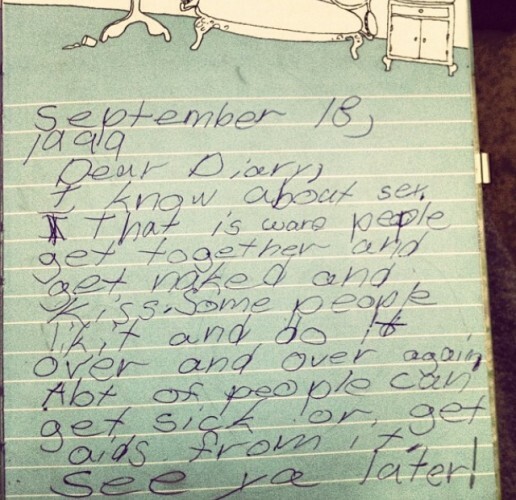 September 18,
1999
Dear Diary,
I know about sex.
I That is ware people
get together and
get naked and
kiss. Some people
lik it and do it
over and over again,
Alot of people can
get sick or, get
aids from it.
See ya later!